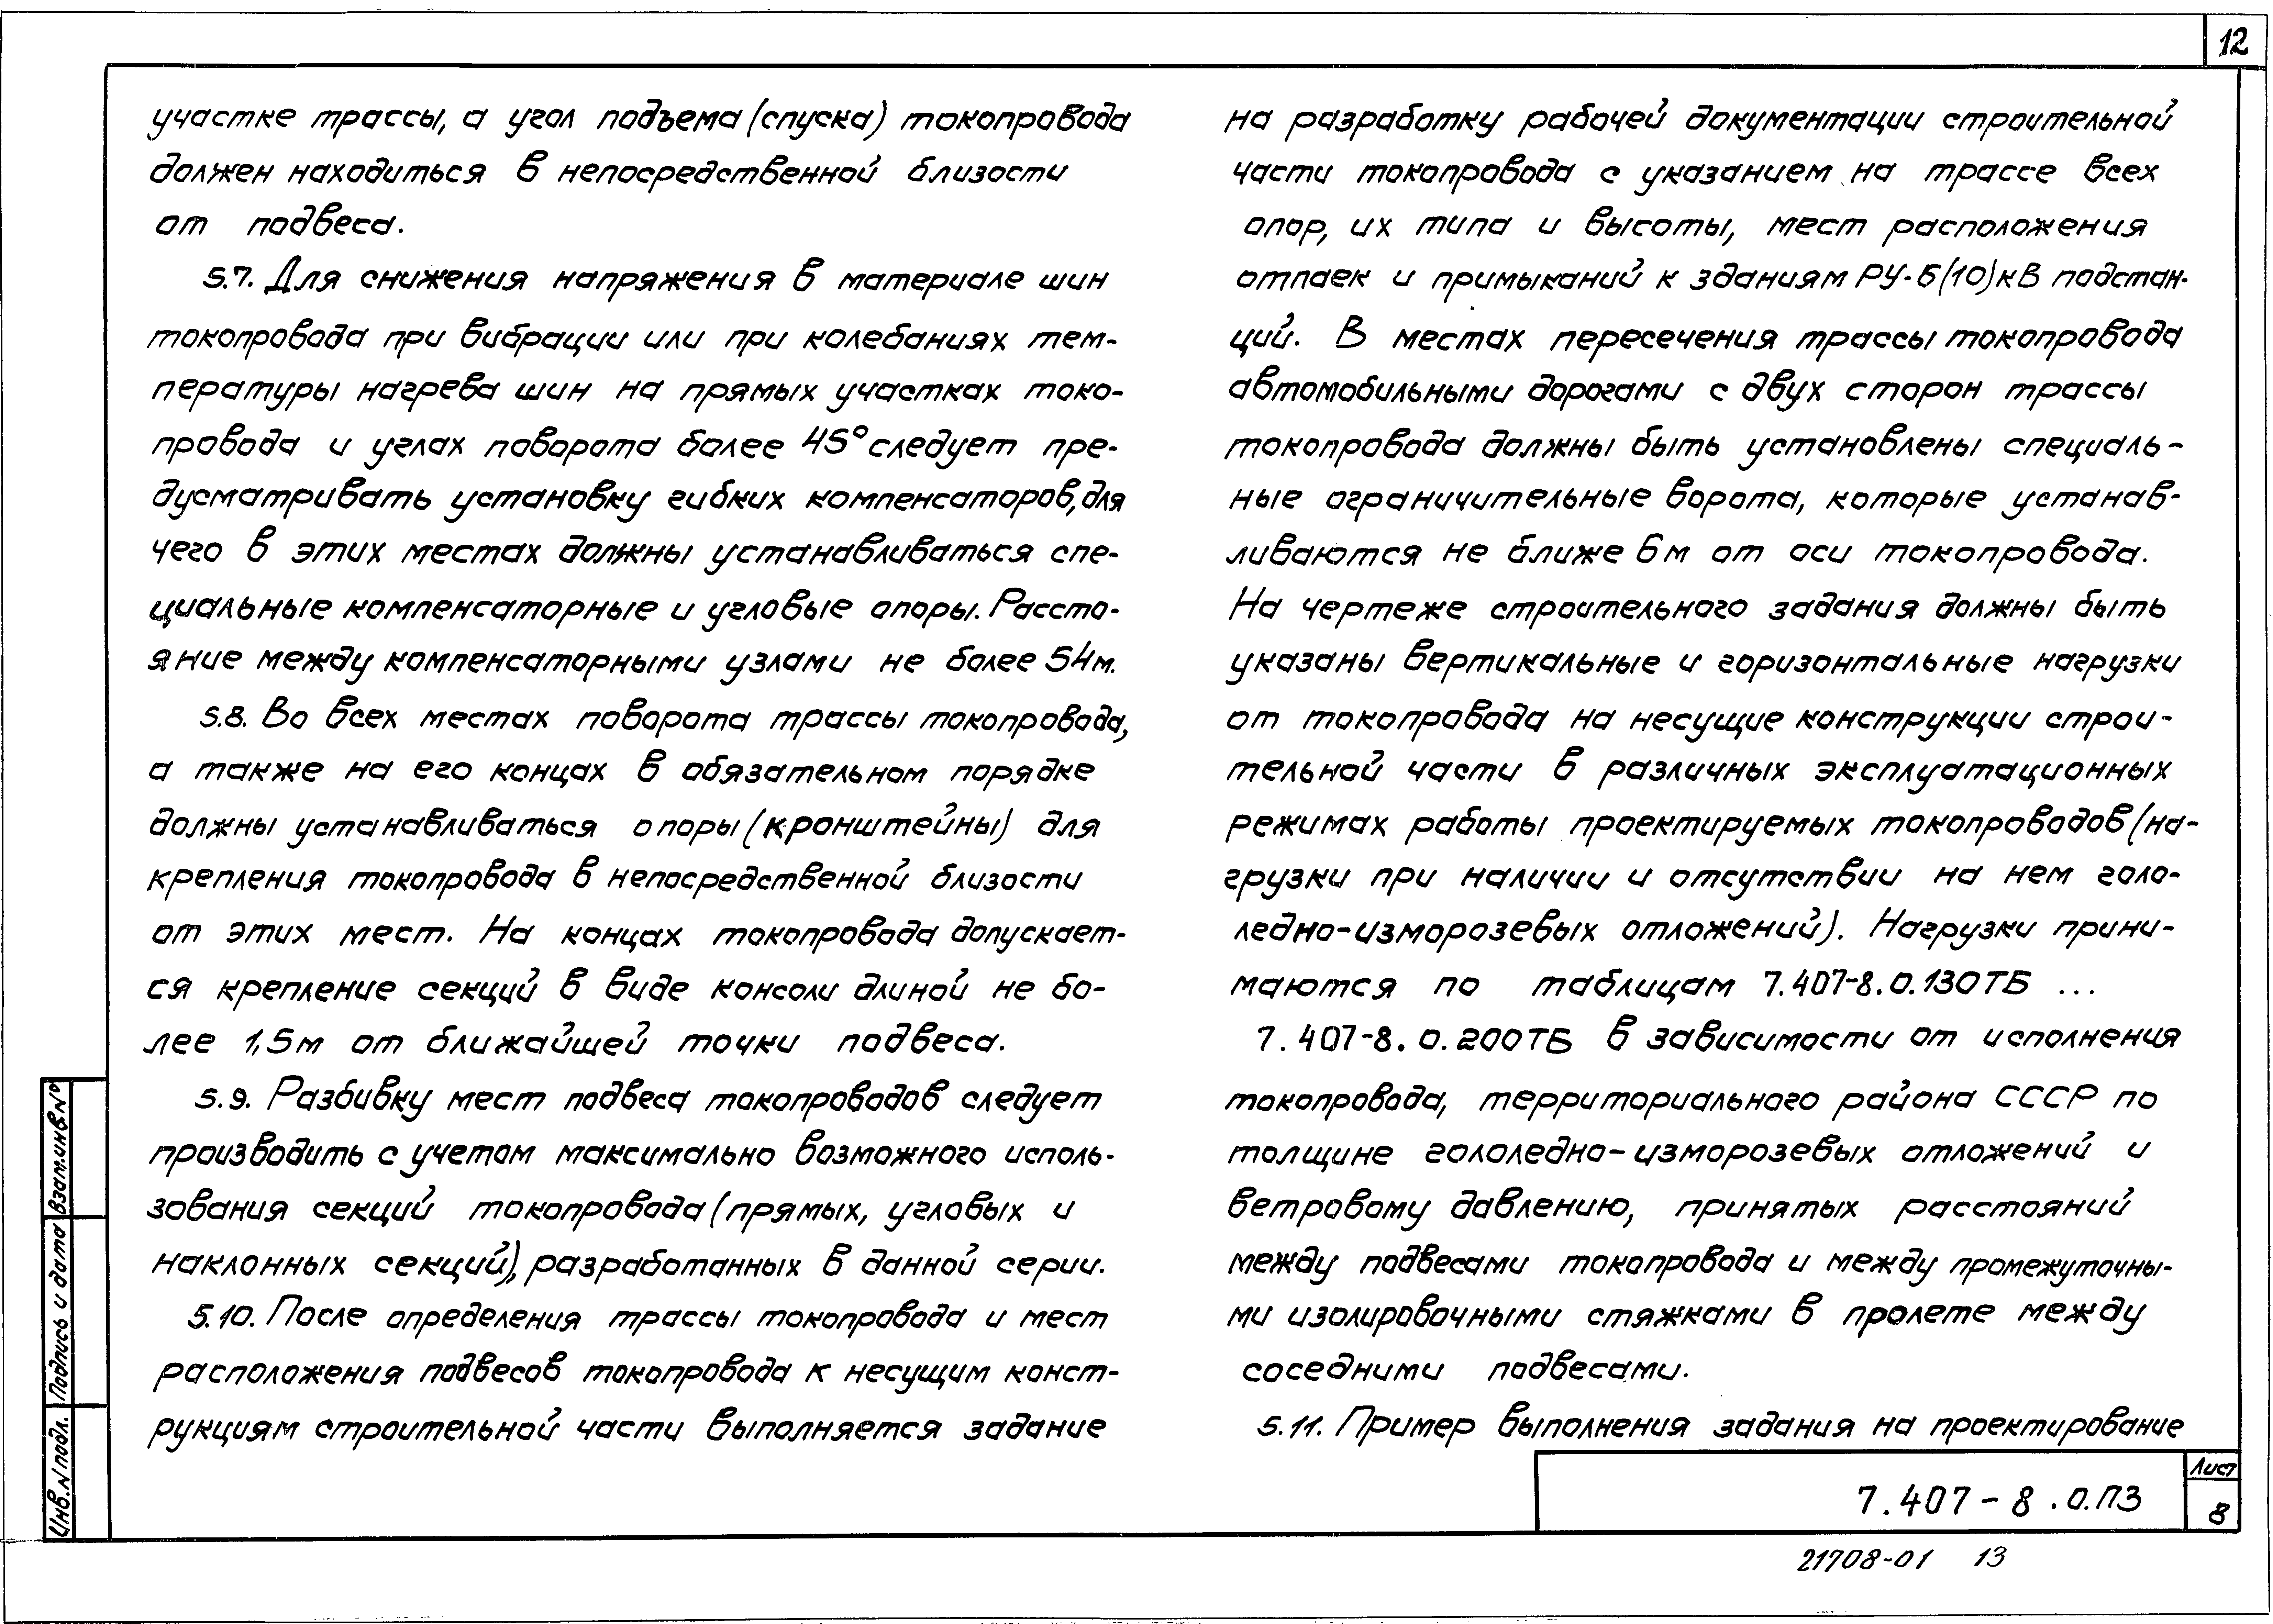 12
участке трассы, а угол подъема (спуска) токопровода
должен находиться в непосредственной близости
от подвеса.
5.7. Для снижения напряжения в материале шин
токопровода при вибрации или при колебаниях тем-
пературы нагрева шин на прямых участках токо-
провода и углах поворота более 45° следует пре-
дусматривать установку гибких компенсаторов, для
чего в этих местах должны устанавливаться спе-
циальные компенсаторные и угловые опоры. Рассто-
яние между компенсаторными узлами не более 54м.
5.8. Во всех местах поворота трассы токопровода,
а также на его концах в обязательном порядке
должны устанавливаться опоры (кронштейны) для
крепления токопровода в непосредственной близости
от этих мест. На концах токопровода допускает-
ся крепление секций в виде консоли длиной не бо-
лее 1,5м от ближайшей точки подвеса.
5.9. Разбивку мест подвеса токопроводов следует
производить с учетом максимально возможного исполь-
зования секций токопровода (прямых, угловых и
наклонных секций), разработанных в данной серии.
5.10. После определения трассы токопровода и мест
расположения подвесов токопровода к несущим конст-
рукциям строительной части выполняется задание
на разработку рабочей документации строительной
части токопровода с указанием на трассе всех
опор, их типа и высоты, мест расположения
отпаек и примыканий к зданиям РУ-6(10)кВ подстан-
ций. В местах пересечения трассы токопровода
автомобильными дорогами с двух сторон трассы
токопровода должны быть установлены специаль-
ные ограничительные ворота, которые устанав-
ливаются не ближе 6м от оси токопровода.
На чертеже строительного задания должны быть
указаны вертикальные и горизонтальные нагрузки
от токопровода на несущие конструкции строи-
тельной части в различных эксплуатационных
режимах работы проектируемых токопроводов (на-
грузки при наличии и отсутствии на нем голо-
ледно-изморозевых отложений). Нагрузки прини-
маются по таблицам 7.407-8.0.130ТБ ...
7.407-8.0.200ТБ в зависимости от исполнения
токопровода, территориального района СССР по
толщине гололедно-изморозевых отложений и
ветровому давлению, принятых расстояний
между подвесами токопровода и между промежуточны-
ми изолировочными стяжками в пролете между
соседними подвесами.
5.11. Пример выполнения задания на проектирование
Инв.N подл. Подпись и дата Взам.инв.N°
7.407-8.0.ПЗ
Лист
8
21708-01 13